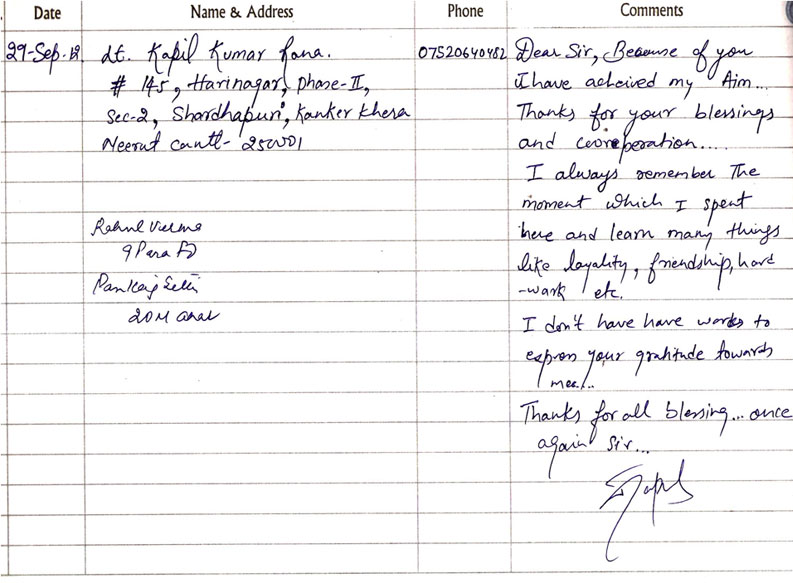 Date Name & Address Phone Comments
29-Sep-12 Lt. Kapil Kumar Rana. 07520640482 Dear Sir, Because of you
# 145, Harinagar, phase-II, I have acheived my Aim...
Sec-2, Shardhapuri, Kanker Khera Thanks for your blessings
Meerut cantt- 250001 and cooreperation.....
I always remember The
moment which I spent
Rahul Verma here and learn many things
9 Para FD like loyality, friendship, hard
Pankaj Sethi -work etc.
20 M
I don't have have words to
express your gratitude towards
me....
Thanks for all blessing... once
again Sir...
Kapil